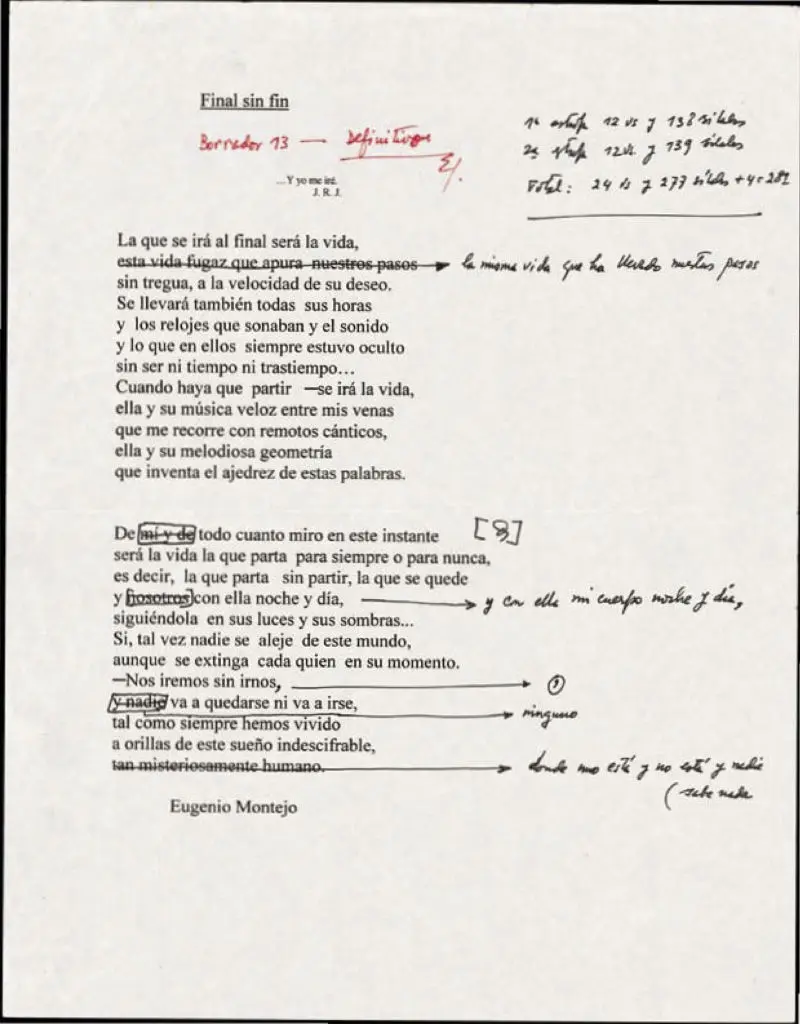 Final sin fin
Borrador 13 — Definitivo
...Y yo me iré.
J. R. J.
1ª estrofa 12 vs y 138 sílabas
2ª estrofa 12 vs. y 139 sílabas
Total: 24 vs y 277 sílabas + 4 = 281
La que se irá al final será la vida,
esta vida fugaz que apura nuestros pasos la misma vida que ha llevado nuestros pasos
sin tregua, a la velocidad de su deseo.
Se llevará también todas sus horas
y los relojes que sonaban y el sonido
y lo que en ellos siempre estuvo oculto
sin ser ni tiempo ni trastiempo...
Cuando haya que partir —se irá la vida,
ella y su música veloz entre mis venas
que me recorre con remotos cánticos,
ella y su melodiosa geometría
que inventa el ajedrez de estas palabras.
De mí y de todo cuanto miro en este instante
será la vida la que parta para siempre o para nunca,
es decir, la que parta sin partir, la que se quede
y nosotros con ella noche y día, y con ella mi cuerpo noche y día,
siguiéndola en sus luces y sus sombras...
Si, tal vez nadie se aleje de este mundo,
aunque se extinga cada quien en su momento.
—Nos iremos sin irnos, ,
y nadie va a quedarse ni va a irse, ninguno
tal como siempre hemos vivido
a orillas de este sueño indescifrable,
tan misteriosamente humano. donde uno está y no está y nadie
(sabe nada
Eugenio Montejo